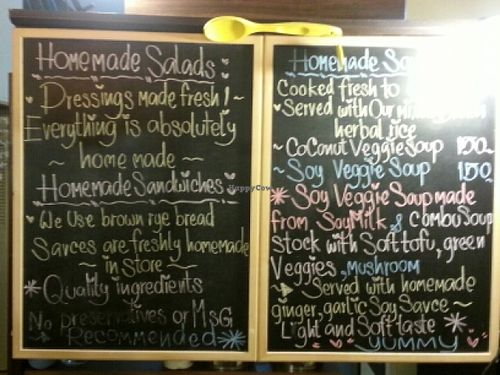 Homemade Salads
Dressings made fresh!
Everything is absolutely
~ home made ~
Homemade Sandwiches
We Use brown rye bread
Savces are freshly homemade
~ in Store ~
* Quality ingredients
No preservatives or MSG
~ Recommended *
Homemade
Cooked fresh to
Served with Our
herbal rice
~ CoConut Veggie Soup 150
~ Soy Veggie Soup 150
* Soy Veggie Soup made
from SoyMilk & Combu Soup
Stock with Soft tofu, green
Veggies, MUSHROOM
~ Served with homemade
ginger, garlic Soy Savce ~
Light and Soft taste
* YUMMY *
HappyCow